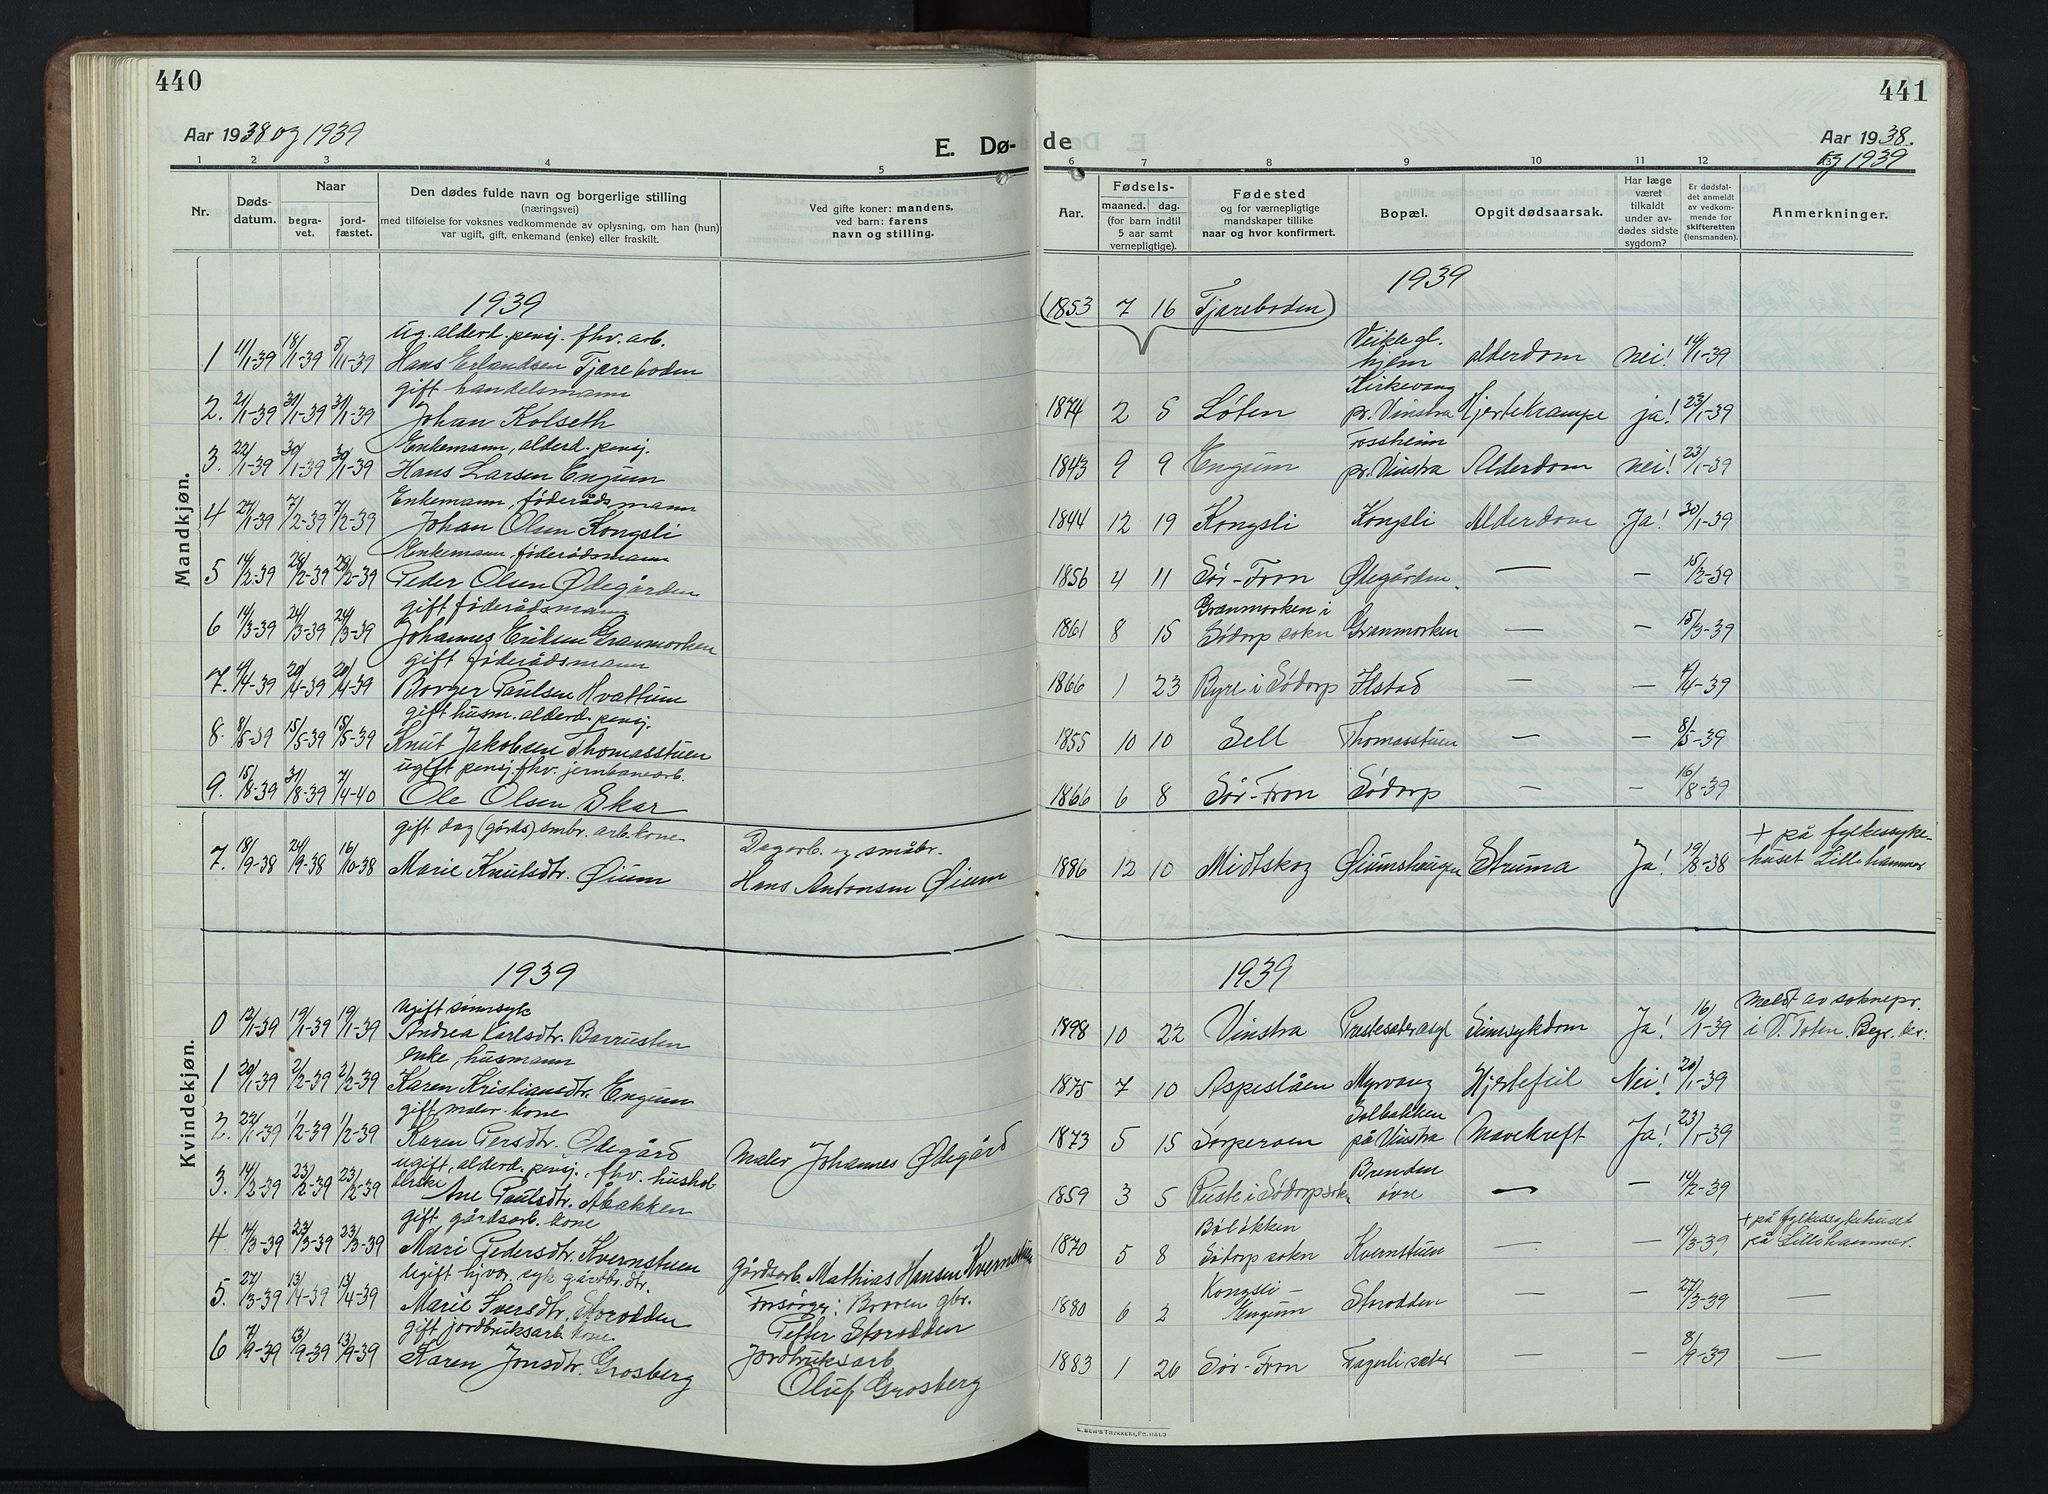 440
Aar 1938 og 1939
E. Dø-
1 2 3 4 5
Nr.
Døds-
datum.
Naar
begra-
vet.
jord-
fæstet.
Den dødes fulde navn og borgerlige stilling
(næringsvei)
med tilføielse for voksnes vedkommende av oplysning, om han (hun)
var ugift, gift, enkemand (enke) eller fraskilt.
Ved gifte koner: mandens,
ved barn: farens
navn og stilling.
Mandkjøn.
1939
ug. alderd. pensj. fhv. arb.
1 11/1-39 18/1-39 5/11-39 Hans Erlandsen Tjæreboden
gift handelsmann
2. 21/1-39 31/1-39 31/1-39 Johan Kolseth
Enkemann, alderd. pensj.
3. 22/1-39 30/1-39 30/1-39 Hans Larsen Engum
Enkemann, føderådsmann
4 27/1-39 7/2-39 7/2-39 Johan Olsen Kongsli
Enkemann, føderådsmann
5 14/2-39 28/2-39 28/2-39 Peder Olsen Ødegården
gift føderådsmann
6 14/3-39 24/3-39 24/3-39 Johannes Eriksen Granmorken
gift føderådsmann
7. 11/4-39 20/4-39 20/4-39 Borger Paulsen Hvattum
gift husm. alderd. pensj.
8. 8/5-39 15/5-39 15/5-39 Knut Jakobsen Thomasstuen
ugift pensj. fhv. jernbanearb.
9. 15/8-39 31/8-39 7/4-40 Ole Olsen Skar
gift dag (gårds) smbr. arb. kone
Dagarb. og småbr.
7. 18/9-38 26/9-38 16/10-38 Marie Knutsdtr. Øium Hans Antonsen Øium
Kvindekjøn.
1939
ugift sinnsyk
0 12/1-39 19/1-39 19/1-39 Andrea Karlsdtr. Bovrusten
enke, husmann
1 20/1-39 2/2-39 2/2-39 Karen Kristiansdtr. Engum
gift maler kone
2. 22/1-39 1/2-39 1/2-39 Karen Persdtr. Ødegård Maler Johannes Ødegård
ugift, alderd. pensj. fhv. hushol
derske
3. 14/2-39 23/2-39 23/2-39 Ane Paulsdtr. Åbakken
gift gårdsarb. kone
4. 14/3-39 23/3-39 23/3-39 Mari Pedersdtr. Kvernstuen Gårdsarb. Mathias Hansen Kvernstuen
Ugift hjvor. syk gårdbr. dtr.
5. 27/3-39 13/4-39 13/4-39 Marie Iversdtr. Storodden Forsørger: Broren gbr.
Petter Storodden
gift jordbruksarb. kone
6 7/9-39 13/9-39 13/9-39 Karen Jonsdtr. Grosberg Jordbruksarb
Oluf Grosberg
441
de
Aar 1938.
og 1939
6 7 8 9 10 11 12 13
Aar.
Fødsels-
maaned. dag.
(for barn indtil
5 aar samt
vernepligtige).
Fødested
og for værnepligtige
mandskaper tillike
naar og hvor konfirmert.
Bopæl.
Opgit dødsaarsak.
Har læge
været
tilkaldt
under av-
dødes sidste
sygdom?
Er dødsfal-
det anmeldt
av vedkom-
mende for
skifteretten
(lensmanden).
Anmerkninger.
1939
(1853 7 16 Tjæreboden)
Veikle gl.
hjem alderdom nei! 14/1-39
Kirkevang
1874 2 5 Løten pr. Vinstra Hjertekrampe ja! 23/1-39
Fossheim
1843 9 9 Engum pr. Vinstra Alderdom nei! 23/1-39
1844 12 19 Kongsli Kongsli Alderdom Ja! 30/1-39
1856 4 11 Sør-Fron Ødegården. — — 15/2-39
Granmorken i
1861 8 15 Sødorp sokn Granmorken — — 15/3-39
1866 1 23 Byre i Sødorp Ilstad — — /4-39
1855 10 10 Sell Thomasstuen — — 8/5-39
1866 6 8 Sør-Fron Sødorp — — 16/8-39
1886 12 10 Midtskog Øiumshaugen Struma Ja! 19/8-38 + på fylkessyke-
huset Lillehammer
1939
1898 10 22 Vinstra Prestesæterasyl Sinnsykdom Ja! 16/1-39 meldt av soknepr.
i V. Toten. Begr. der.
1875 7 10 Aspeslåen Myrvang Hjertefeil Nei! 20/1-39
Solbakken
1873 5 15 Sorperoen på Vinstra Mavekreft Ja! 23/1-39
Brenden
1859 3 5 Ruste i Sødorp sokn øvre — — 14/2-39
Bøløkken
1870 5 8 Sødorp sokn Kvernstuen — — 14/3-39 + på fylkessykehuset
på Lillehammer.
Kongsli -
1880 6 2 Engum Storodden — — 27/3-39 —
1883 1 26 Sør-Fron Fagerli sæter — — 8/9-39 —